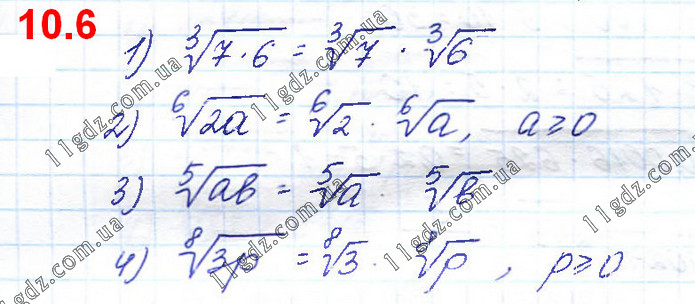 10.6
1) ∛(7·6) = ∛7 · ∛6
2) ⁶√(2a) = ⁶√2 · ⁶√a, a ≥ 0
3) ⁵√(ab) = ⁵√a ⁵√b
4) ⁸√(3p) = ⁸√3 · ⁸√p, p ≥ 0
11gdz.com.ua
11gdz.com.ua
11gdz.com.ua
11gdz.com.ua
11gdz.com.ua